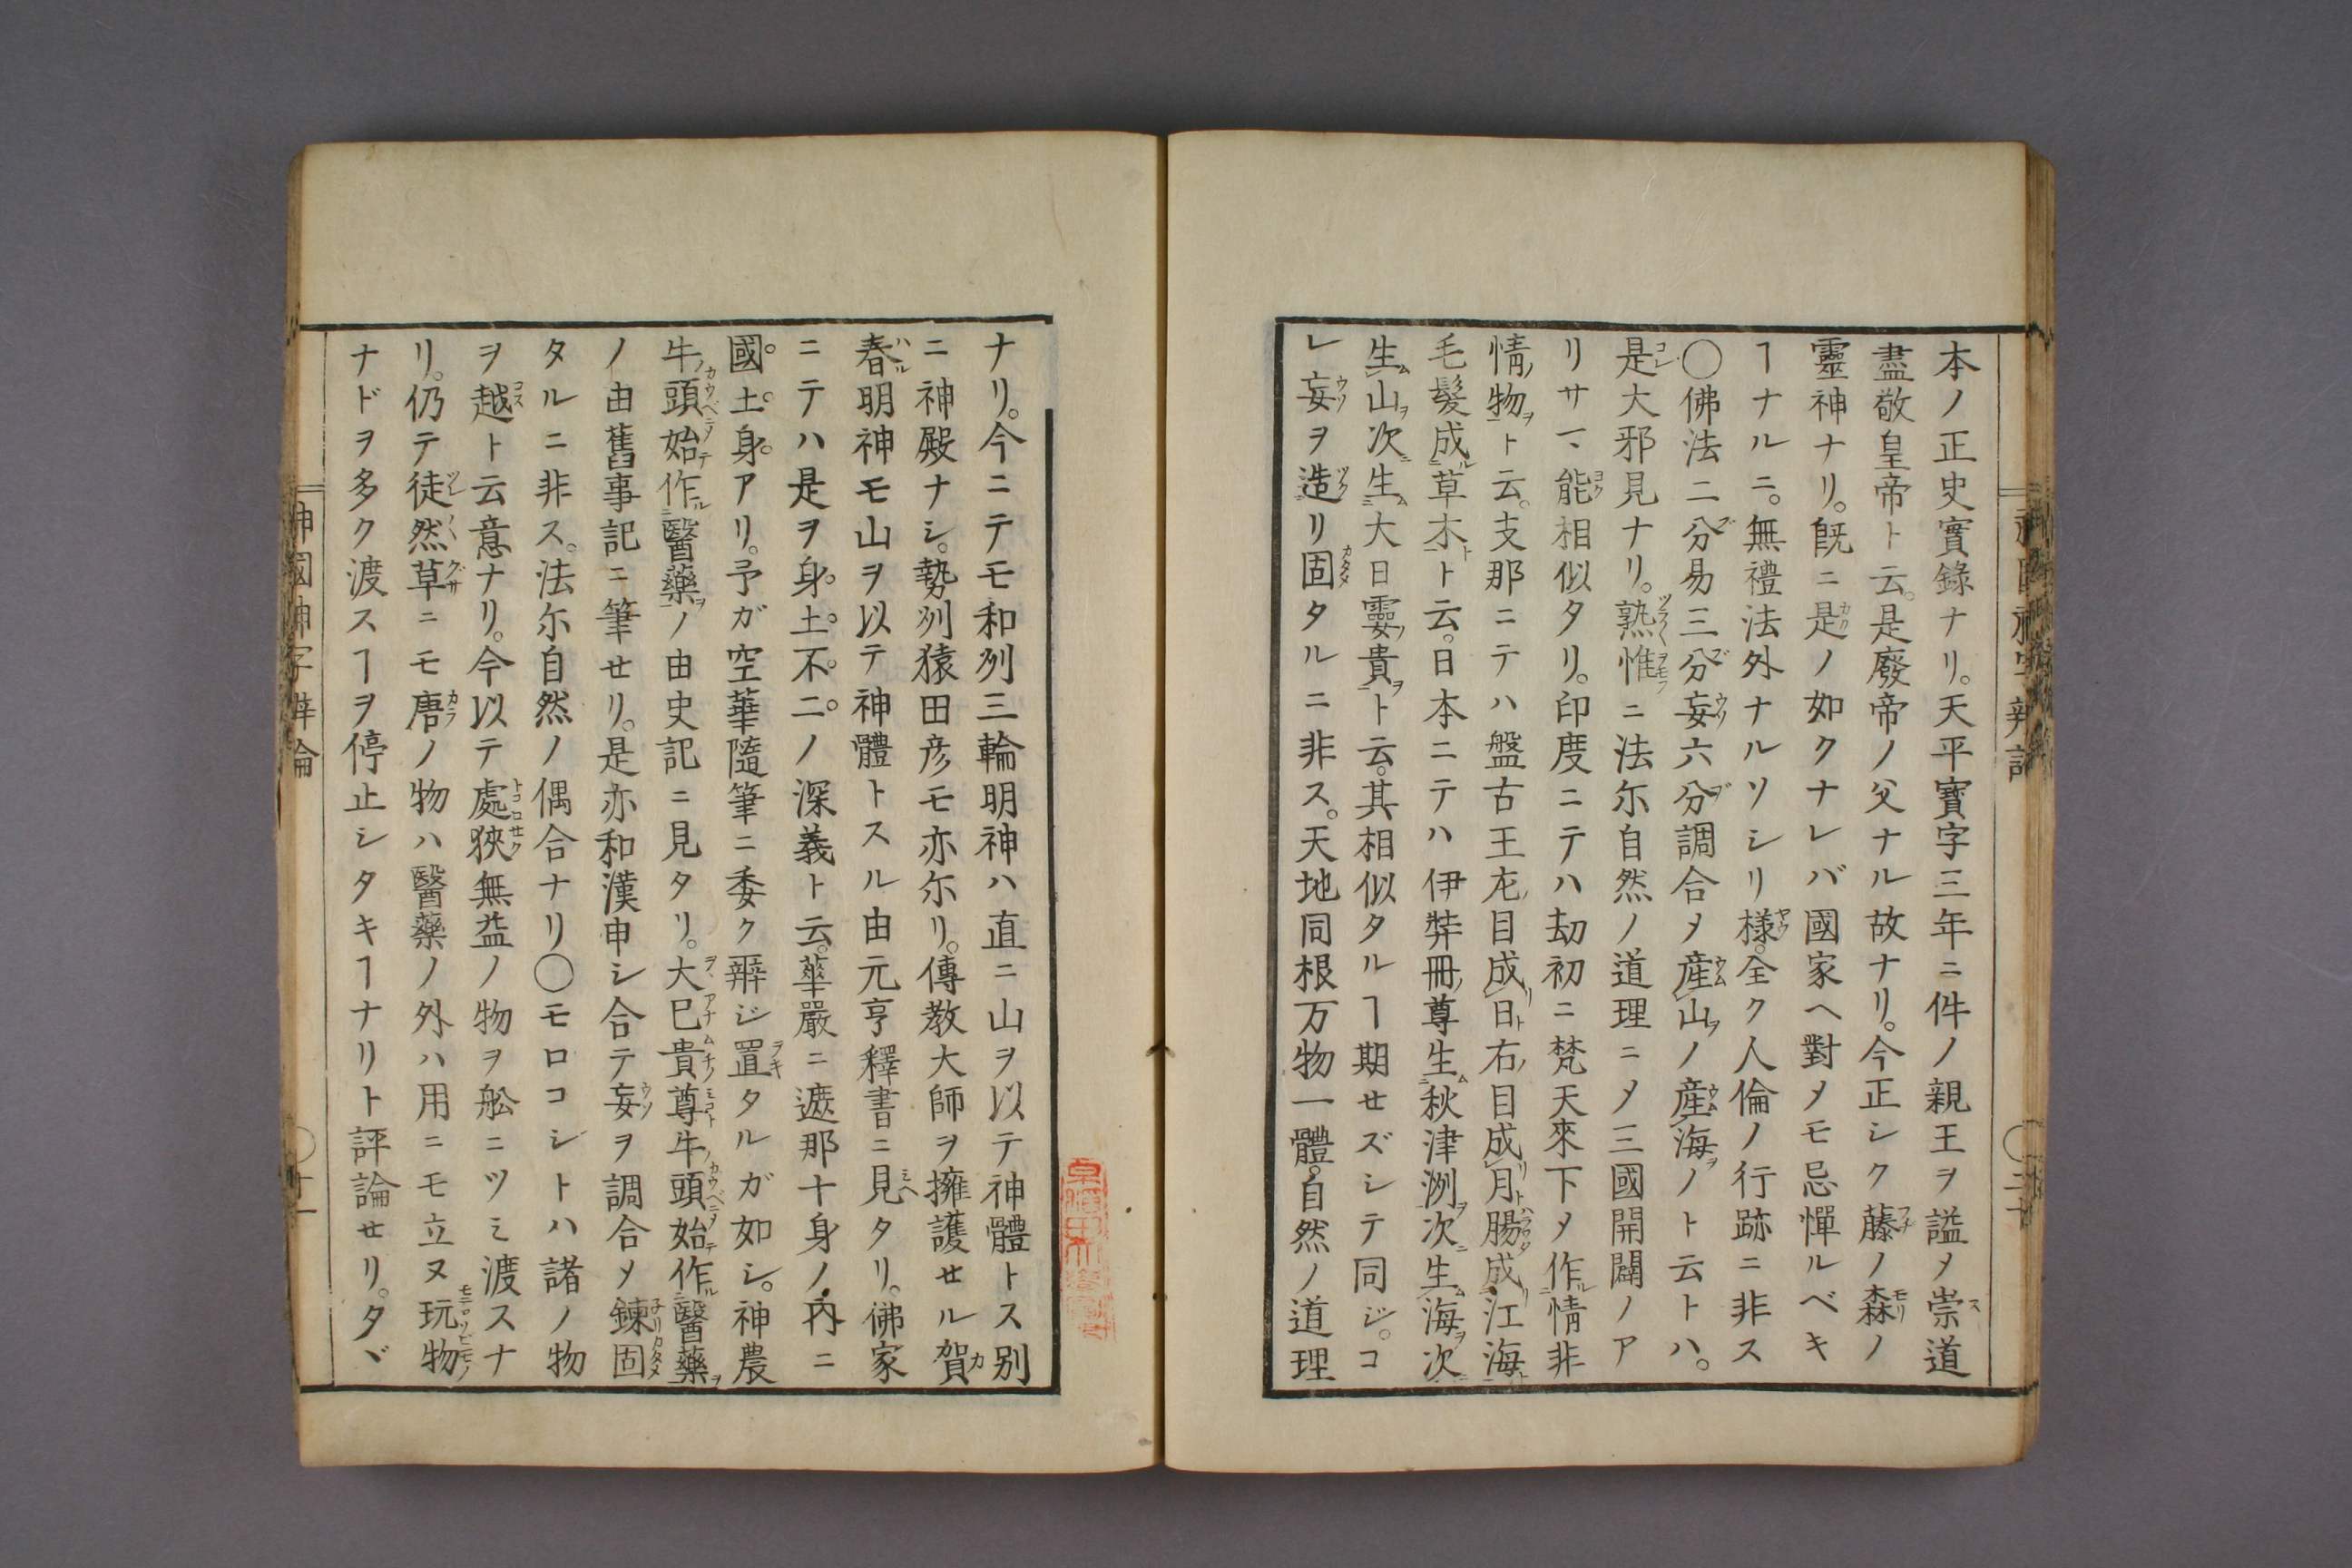 本ノ正史實錄ナリ。天平寳字三年ニ件ノ親王ヲ謚メ崇道
盡敬皇帝ト云。是廢帝ノ父ナル故ナリ。今正シク藤ノ森ノ
靈神ナリ。既ニ是ノ如クナレバ國家ヘ對メモ忌憚ルベキ
ヿナルニ。無禮法外ナルソシリ様。全ク人倫ノ行跡ニ非ス
〇佛法二分易三分妄六分調合メ産山ノ産海ノト云トハ。
是大邪見ナリ。熟惟ニ法尔自然ノ道理ニメ三國開闢ノア
リサマ、能相似タリ。印度ニテハ劫初ニ梵天來下メ作情非
情物ト云。支那ニテハ盤古王左目成日右目成月腸成江海
毛髮成草木ト云。日本ニテハ伊弉冊尊生秋津洲次生海次
生山次生大日孁貴ト云。其相似タルヿ期セズシテ同ジ。コ
レ妄ヲ造リ固タルニ非ス。天地同根万物一體。自然ノ道理
ナリ。今ニテモ和刕三輪明神ハ直ニ山ヲ以テ神體トス別
ニ神殿ナシ。勢刕猿田彦モ亦尓リ。傳教大師ヲ擁護セル賀
春明神モ山ヲ以テ神體トスル由元亨釋書ニ見タリ。佛家
ニテハ是ヲ身土不二ノ深義ト云。華嚴ニ遮那十身ノ内ニ
國土身アリ。予ガ空華隨筆ニ委ク辯ジ置タルガ如シ。神農
牛頭始作醫藥ノ由史記ニ見タリ。大巳貴尊牛頭始作醫藥
ノ由舊事記ニ筆セリ。是亦和漢申シ合テ妄ヲ調合メ鍊固
タルニ非ス。法尓自然ノ偶合ナリ〇モロコシトハ諸ノ物
ヲ越ト云意ナリ。今以テ處狹無益ノ物ヲ舩ニツミ渡スナ
リ。仍テ徒然草ニモ唐ノ物ハ醫藥ノ外ハ用ニモ立ヌ玩物
ナドヲ多ク渡スヿヲ停止シタキヿナリト評論セリ。タヾ
神國神字辨論